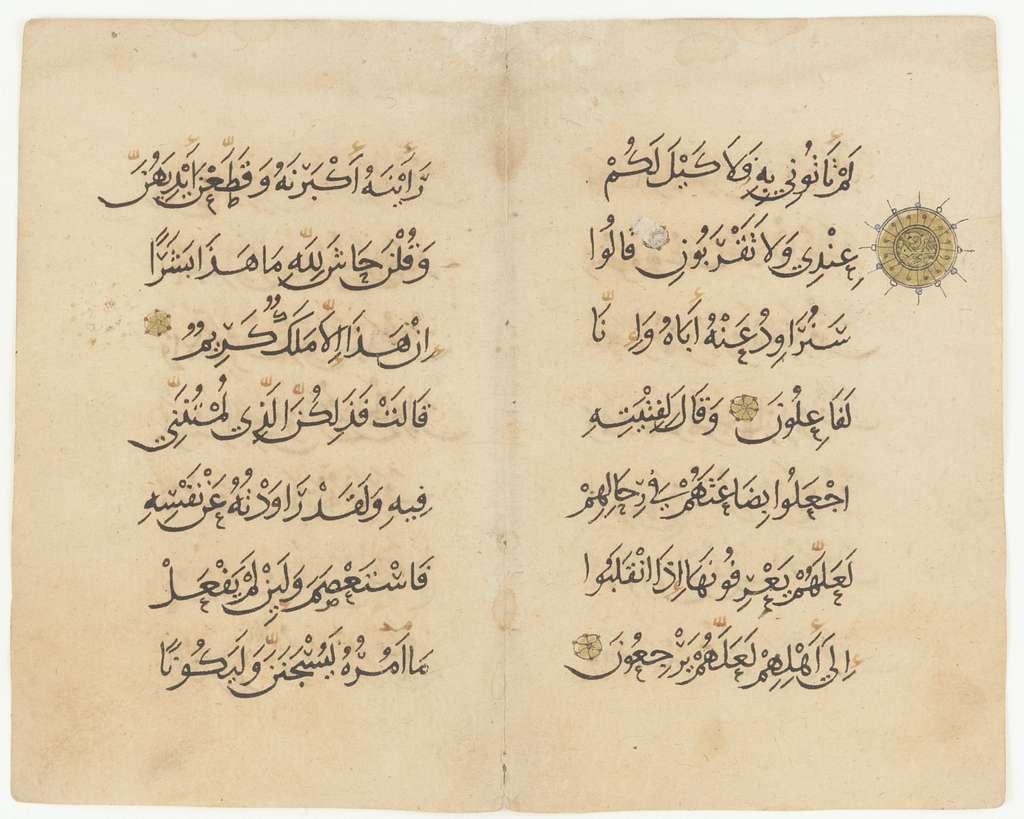 لَمْ تَأْتُونِي بِهِ وَلَا كَيْلَ لَكُمْ
عِنْدِي وَلَا تَقْرَبُونِ قَالُوا
سَنُرَاوِدُ عَنْهُ أَبَاهُ وَإِنَّا
لَفَاعِلُونَ وَقَالَ لِفِتْيَتِهِ
اجْعَلُوا بِضَاعَتَهُمْ فِي رِحَالِهِمْ
لَعَلَّهُمْ يَعْرِفُونَهَا إِذَا انْقَلَبُوا
إِلَى أَهْلِهِمْ لَعَلَّهُمْ يَرْجِعُونَ
رَأَيْنَهُ أَكْبَرْنَهُ وَقَطَّعْنَ أَيْدِيَهُنَّ
وَقُلْنَ حَاشَ لِلَّهِ مَا هَذَا بَشَرًا
إِنْ هَذَا إِلَّا مَلَكٌ كَرِيمٌ
قَالَتْ فَذَلِكُنَّ الَّذِي لُمْتُنَّنِي
فِيهِ وَلَقَدْ رَاوَدْتُهُ عَنْ نَفْسِهِ
فَاسْتَعْصَمَ وَلَئِنْ لَمْ يَفْعَلْ
مَا آمُرُهُ لَيُسْجَنَنَّ وَلَيَكُونًا